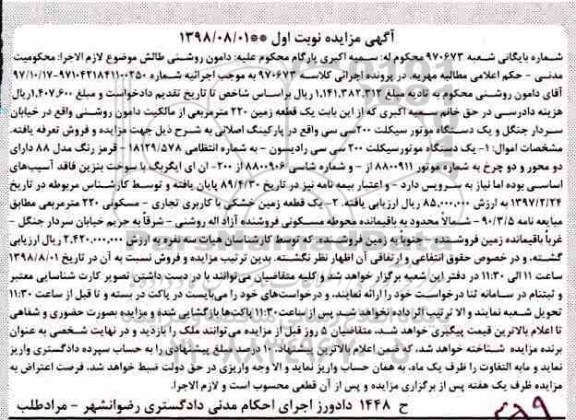 آگهی مزایده نوبت اول **۱۳۹۸/۰۸/۰۱
شماره بایگانی شعبه ۹۷۰۶۷۳ محکوم له: سمیه اکبری پارگام محکوم علیه: دامون روشنی طالش موضوع لازم الاجرا: محکومیت
مدنی - حکم اعلامی مطالبه مهریه. در پرونده اجرائی کلاسه ۹۷۰۶۷۳ به موجب اجرائیه شماره ۹۷۱۰۴۲۱۸۴۱۱۰۰۳۵۰-۹۷/۱۰/۱۷
آقای دامون روشنی محکوم به تادیه مبلغ ۱,۱۴۱,۳۸۲,۳۱۲ ریال براساس شاخص تا تاریخ تقدیم دادخواست و مبلغ ۱,۴۰۷,۶۰۰ریال
هزینه دادرسی در حق خانم سمیه اکبری که از این بابت یک قطعه زمین ۲۲۰ مترمربعی از مالکیت دامون روشنی واقع در خیابان
سردار جنگل و یک دستگاه موتور سیکلت ۲۰۰سی سی واقع در پارکینگ اصلانی به شرح ذیل جهت مزایده و فروش تعرفه یافته.
مشخصات اموال: ۱- یک دستگاه موتورسیکلت ۲۰۰ سی سی رادیسون - به شماره انتظامی ۵۷۸/ ۱۸۱۲۹ - قرمز رنگ مدل ۸۸ دارای
دو محور و دو چرخ به شماره موتور ۸۸۰۰۹۱۱ از - و شماره شاسی ۸۸۰۰۹۰۶ از ۲۰۰- ان ای ایگریگ با سوخت بنزین فاقد آسیب‌های
اساسی بوده اما نیاز به سرویس دارد - و اعتبار بیمه نامه نیز در تاریخ ۸۹/۴/۳۰ پایان یافته و توسط کارشناس مربوطه در تاریخ
۱۳۹۷/۲/۲۴ به ارزش ۸۵,۰۰۰,۰۰۰ ریال ارزیابی یافته. ۲- یک قطعه زمین خشکی با کاربری تجاری - مسکونی ۲۲۰ مترمربعی مطابق
مبایعه نامه ۹۰/۳/۵- شمالاً محدود به باقیمانده محوطه مسکونی فروشنده آزاد اله روشنی - شرقاً به حریم خیابان سردار جنگل -
غرباً باقیمانده زمین فروشنده - جنوباً به زمین فروشنده. که توسط کارشناسان هیات سه نفره به ارزش ۲,۴۲۰,۰۰۰,۰۰۰ ریال ارزیابی
گشته. و در خصوص حقوق انتفاعی و ارتفاقی آن اظهار نظر نگشته. بدین ترتیب مزایده و فروش نسبت به آن در تاریخ ۱۳۹۸/۸/۰۱
ساعت ۱۱ الی ۱۱:۳۰ در دفتر این شعبه برگزار خواهد شد و کلیه متقاضیان می‌توانند با در دست داشتن تصویر کارت شناسایی معتبر
و ثبتنام در سامانه ثنا درخواست خود را ارائه نمایند. و درخواست‌های خود را می‌بایست در پاکت در بسته و تا قبل از ساعت ۱۱:۳۰
تحویل شعبه نمایند و الا ترتیب اثر داده نخواهد شد. پس از ساعت ۱۱:۳۰ پاکت‌ها بازگشایی شده و مزایده بصورت حضوری و شفاهی
تا اعلام بالاترین قیمت پیگیری خواهد شد. متقاضیان ۵ روز قبل از مزایده می‌توانند ملک را بازدید و در نهایت شخصی به عنوان
برنده مزایده شناخته خواهد شد. که ضمن اعلام بالاترین پیشنهاد. ۱۰ درصد مبلغ پیشنهادی را به حساب سپرده دادگستری واریز
نماید و مابه التفاوت را ظرف یک ماه. به همان حساب واریز نماید و الا وجه واریزی در حق دولت ضبط خواهد شد. فرصت اعتراض به
مزایده ظرف یک هفته پس از برگزاری مزایده و پس از آن قطعی محسوب است و لازم الاجرا.
ح ۱۴۴۸ دادورز اجرای احکام مدنی دادگستری رضوانشهر - مرادطلب